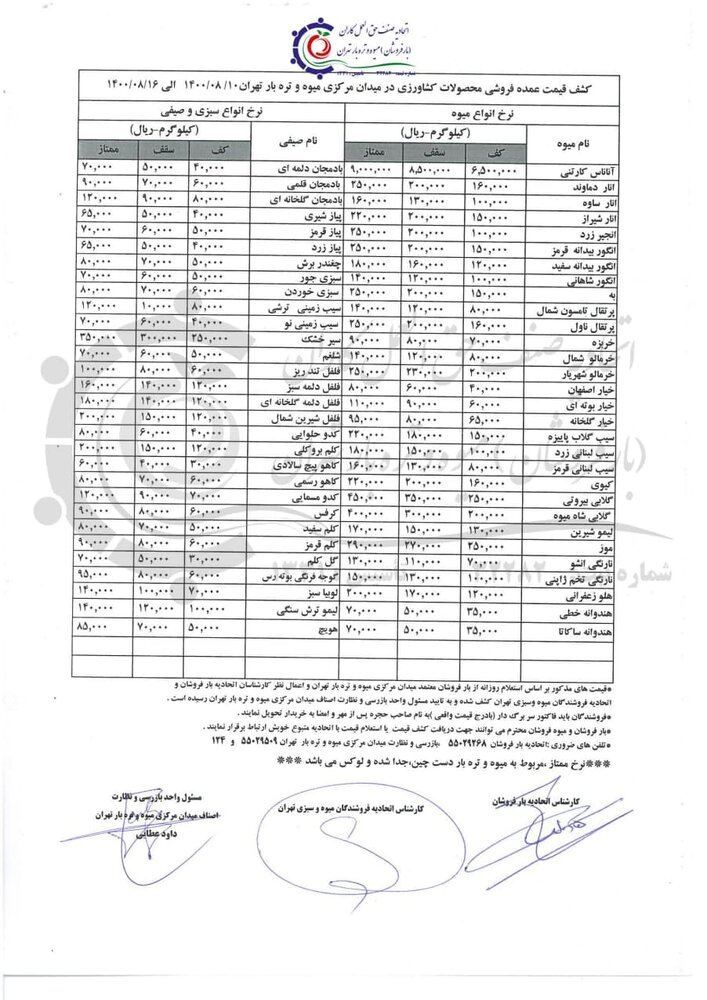 اتحادیه صنف حق العمل کاران
(بارفروشان) میوه و تره بار تهران
کشف قیمت عمده فروشی محصولات کشاورزی در میدان مرکزی میوه و تره بار تهران ۱۴۰۰/۰۸/۱۰ الی ۱۴۰۰/۰۸/۱۶
نرخ انواع میوه
نام میوه (کیلوگرم-ریال)
کف سقف ممتاز
آناناس کارتنی ۶,۵۰۰,۰۰۰ ۸,۵۰۰,۰۰۰ ۹,۰۰۰,۰۰۰
انار دماوند ۱۶۰,۰۰۰ ۲۰۰,۰۰۰ ۲۵۰,۰۰۰
انار ساوه ۱۰۰,۰۰۰ ۱۳۰,۰۰۰ ۱۶۰,۰۰۰
انار شیراز ۱۵۰,۰۰۰ ۲۰۰,۰۰۰ ۲۲۰,۰۰۰
انجیر زرد ۱۰۰,۰۰۰ ۲۰۰,۰۰۰ ۲۵۰,۰۰۰
انگور بیدانه قرمز ۱۵۰,۰۰۰ ۲۰۰,۰۰۰ ۲۵۰,۰۰۰
انگور بیدانه سفید ۱۲۰,۰۰۰ ۱۶۰,۰۰۰ ۱۸۰,۰۰۰
انگور شاهانی ۱۰۰,۰۰۰ ۱۲۰,۰۰۰ ۱۴۰,۰۰۰
به ۱۵۰,۰۰۰ ۲۰۰,۰۰۰ ۲۵۰,۰۰۰
پرتقال تامسون شمال ۸۰,۰۰۰ ۱۲۰,۰۰۰ ۱۴۰,۰۰۰
پرتقال ناول ۱۶۰,۰۰۰ ۲۰۰,۰۰۰ ۲۵۰,۰۰۰
خربزه ۷۰,۰۰۰ ۸۰,۰۰۰ ۹۰,۰۰۰
خرمالو شمال ۸۰,۰۰۰ ۱۲۰,۰۰۰ ۱۴۰,۰۰۰
خرمالو شهریار ۲۰۰,۰۰۰ ۲۳۰,۰۰۰ ۲۵۰,۰۰۰
خیار اصفهان ۴۰,۰۰۰ ۶۰,۰۰۰ ۸۰,۰۰۰
خیار بوته ای ۶۰,۰۰۰ ۹۰,۰۰۰ ۱۱۰,۰۰۰
خیار گلخانه ۶۵,۰۰۰ ۸۰,۰۰۰ ۹۵,۰۰۰
سیب گلاب پاییزه ۱۵۰,۰۰۰ ۱۸۰,۰۰۰ ۲۲۰,۰۰۰
سیب لبنانی زرد ۱۰۰,۰۰۰ ۱۵۰,۰۰۰ ۱۸۰,۰۰۰
سیب لبنانی قرمز ۸۰,۰۰۰ ۱۳۰,۰۰۰ ۱۶۰,۰۰۰
کیوی ۱۶۰,۰۰۰ ۲۰۰,۰۰۰ ۲۲۰,۰۰۰
گلابی بیروتی ۲۵۰,۰۰۰ ۳۵۰,۰۰۰ ۴۵۰,۰۰۰
گلابی شاه میوه ۲۰۰,۰۰۰ ۳۰۰,۰۰۰ ۴۰۰,۰۰۰
لیمو شیرین ۱۳۰,۰۰۰ ۱۵۰,۰۰۰ ۱۷۰,۰۰۰
موز ۲۵۰,۰۰۰ ۲۷۰,۰۰۰ ۲۹۰,۰۰۰
نارنگی انشو ۷۰,۰۰۰ ۱۱۰,۰۰۰ ۱۳۰,۰۰۰
نارنگی تخم ژاپنی ۱۰۰,۰۰۰ ۱۳۰,۰۰۰ ۱۵۰,۰۰۰
هلو زعفرانی ۱۲۰,۰۰۰ ۱۷۰,۰۰۰ ۲۰۰,۰۰۰
هندوانه خطی ۳۵,۰۰۰ ۵۰,۰۰۰ ۷۰,۰۰۰
هندوانه ساکاتا ۳۵,۰۰۰ ۵۰,۰۰۰ ۷۰,۰۰۰
نرخ انواع سبزی و صیفی
نام صیفی (کیلوگرم-ریال)
کف سقف ممتاز
بادمجان دلمه ای ۴۰,۰۰۰ ۵۰,۰۰۰ ۷۰,۰۰۰
بادمجان قلمی ۶۰,۰۰۰ ۷۰,۰۰۰ ۹۰,۰۰۰
بادمجان گلخانه ای ۸۰,۰۰۰ ۹۰,۰۰۰ ۱۲۰,۰۰۰
پیاز شیری ۴۰,۰۰۰ ۵۰,۰۰۰ ۶۵,۰۰۰
پیاز قرمز ۵۰,۰۰۰ ۶۰,۰۰۰ ۷۰,۰۰۰
پیاز زرد ۴۰,۰۰۰ ۵۰,۰۰۰ ۶۵,۰۰۰
چغندر برش ۵۰,۰۰۰ ۷۰,۰۰۰ ۸۰,۰۰۰
سبزی جور ۵۰,۰۰۰ ۶۰,۰۰۰ ۷۰,۰۰۰
سبزی خوردن ۶۰,۰۰۰ ۷۰,۰۰۰ ۸۰,۰۰۰
سیب زمینی ترشی ۸۰,۰۰۰ ۱۰,۰۰۰ ۱۲۰,۰۰۰
سیب زمینی نو ۴۰,۰۰۰ ۶۰,۰۰۰ ۷۰,۰۰۰
سیر خشک ۲۵۰,۰۰۰ ۳۰۰,۰۰۰ ۳۵۰,۰۰۰
شلغم ۵۰,۰۰۰ ۶۰,۰۰۰ ۷۰,۰۰۰
فلفل تند ریز ۶۰,۰۰۰ ۸۰,۰۰۰ ۱۰۰,۰۰۰
فلفل دلمه سبز ۱۲۰,۰۰۰ ۱۴۰,۰۰۰ ۱۶۰,۰۰۰
فلفل دلمه گلخانه ای ۱۲۰,۰۰۰ ۱۴۰,۰۰۰ ۱۸۰,۰۰۰
فلفل شیرین شمال ۱۲۰,۰۰۰ ۱۵۰,۰۰۰ ۲۰۰,۰۰۰
کدو حلوایی ۴۰,۰۰۰ ۶۰,۰۰۰ ۸۰,۰۰۰
کلم بروکلی ۱۲۰,۰۰۰ ۱۵۰,۰۰۰ ۲۰۰,۰۰۰
کاهو پیچ سالادی ۳۰,۰۰۰ ۴۰,۰۰۰ ۶۰,۰۰۰
کاهو رسمی ۶۰,۰۰۰ ۷۰,۰۰۰ ۸۰,۰۰۰
کدو مسمایی ۷۰,۰۰۰ ۹۰,۰۰۰ ۱۲۰,۰۰۰
کرفس ۶۰,۰۰۰ ۸۰,۰۰۰ ۹۰,۰۰۰
کلم سفید ۵۰,۰۰۰ ۷۰,۰۰۰ ۸۰,۰۰۰
کلم قرمز ۶۰,۰۰۰ ۸۰,۰۰۰ ۹۰,۰۰۰
گل کلم ۳۰,۰۰۰ ۵۰,۰۰۰ ۷۰,۰۰۰
گوجه فرنگی بوته رس ۶۰,۰۰۰ ۸۰,۰۰۰ ۹۵,۰۰۰
لوبیا سبز ۷۰,۰۰۰ ۱۰۰,۰۰۰ ۱۴۰,۰۰۰
لیمو ترش سنگی ۱۰۰,۰۰۰ ۱۲۰,۰۰۰ ۱۴۰,۰۰۰
هویج ۵۰,۰۰۰ ۷۰,۰۰۰ ۸۵,۰۰۰
*قیمت های مذکور بر اساس استعلام روزانه از بار فروشان معتمد میدان مرکزی میوه و تره بار تهران و اعمال نظر کارشناسان اتحادیه بار فروشان و
اتحادیه فروشندگان میوه وسبزی تهران کشف شده و به تایید مسئول واحد بازرسی و نظارت اصناف میدان مرکزی میوه و تره بار تهران رسیده است .
*فروشندگان باید فاکتور سر برگ دار (بادرج قیمت واقعی )به نام صاحب حجره پس از مهر و امضا به خریدار تحویل نمایند .
*بار فروشان و میوه فروشان محترم می توانند جهت دریافت کشف قیمت یا استعلام قیمت با اتحادیه متبوع خویش ارتباط برقرار نمایند .
*تلفن های ضروری :اتحادیه بار فروشان ۵۵۰۲۹۲۶۸ ،بازرسی و نظارت میدان مرکزی میوه و تره بار تهران ۵۵۰۲۹۵۰۹ و ۱۲۴
***نرخ ممتاز ،مربوط به میوه و تره بار دست چین،جدا شده و لوکس می باشد ***
کارشناس اتحادیه بار فروشان
کارشناس اتحادیه فروشندگان میوه و سبزی تهران
مسئول واحد بازرسی و نظارت
اصناف میدان مرکزی میوه و تره بار تهران
داود عطایی